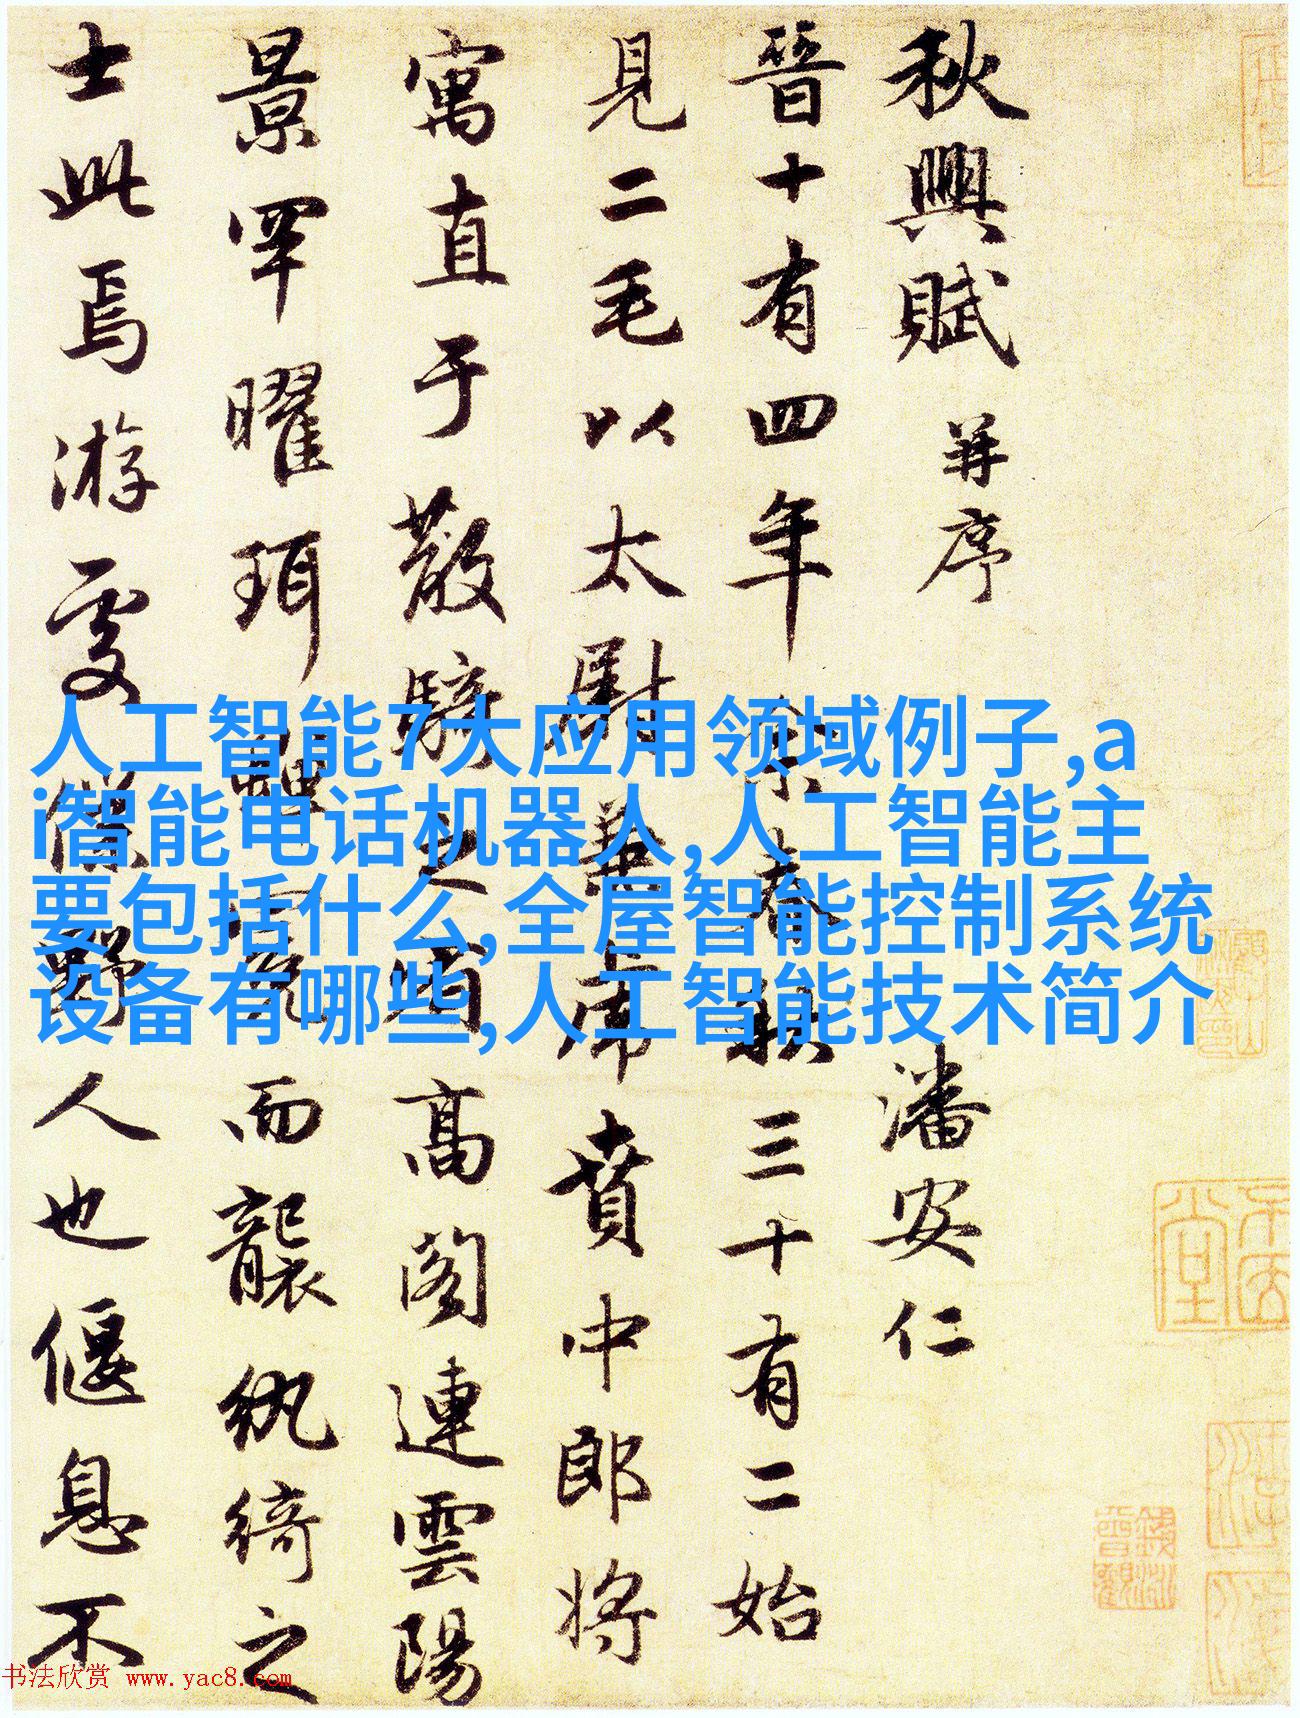 秋興賦 并序
潘安仁
晉十有四年余春秋三十有二始
見二毛以太尉掾兼虎賁中郎將
寓直于散騎之省高閣連雲陽
景罕曜珥蟬冕而襲紈綺之
士此焉游處僕野人也偃息不
人工智能7大应用领域例子,a
i智能电话机器人,人工智能主
要包括什么,全屋智能控制系统
设备有哪些,人工智能技术简介
书法欣赏 www.yac8.com